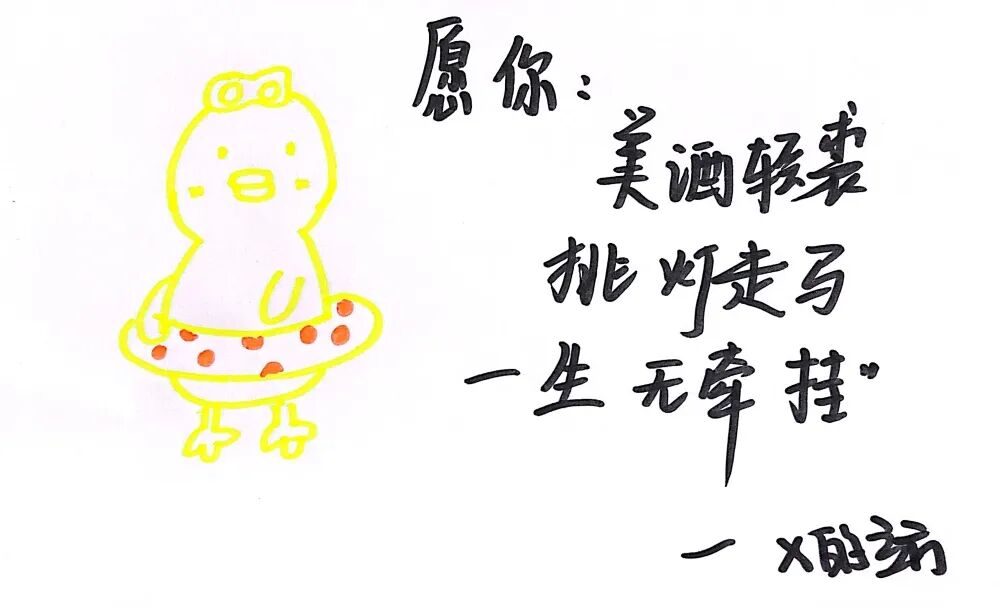 愿你:
美酒轻裘
挑灯走马
一生无牵挂"